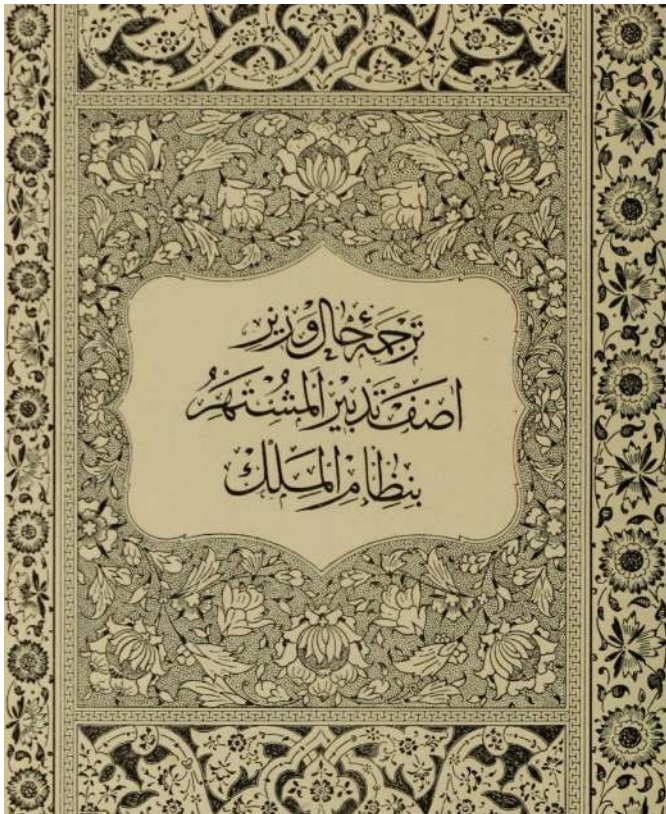 ترجمهٔ حال وزير
اصف تدبير المشتهر
بنظام الملك